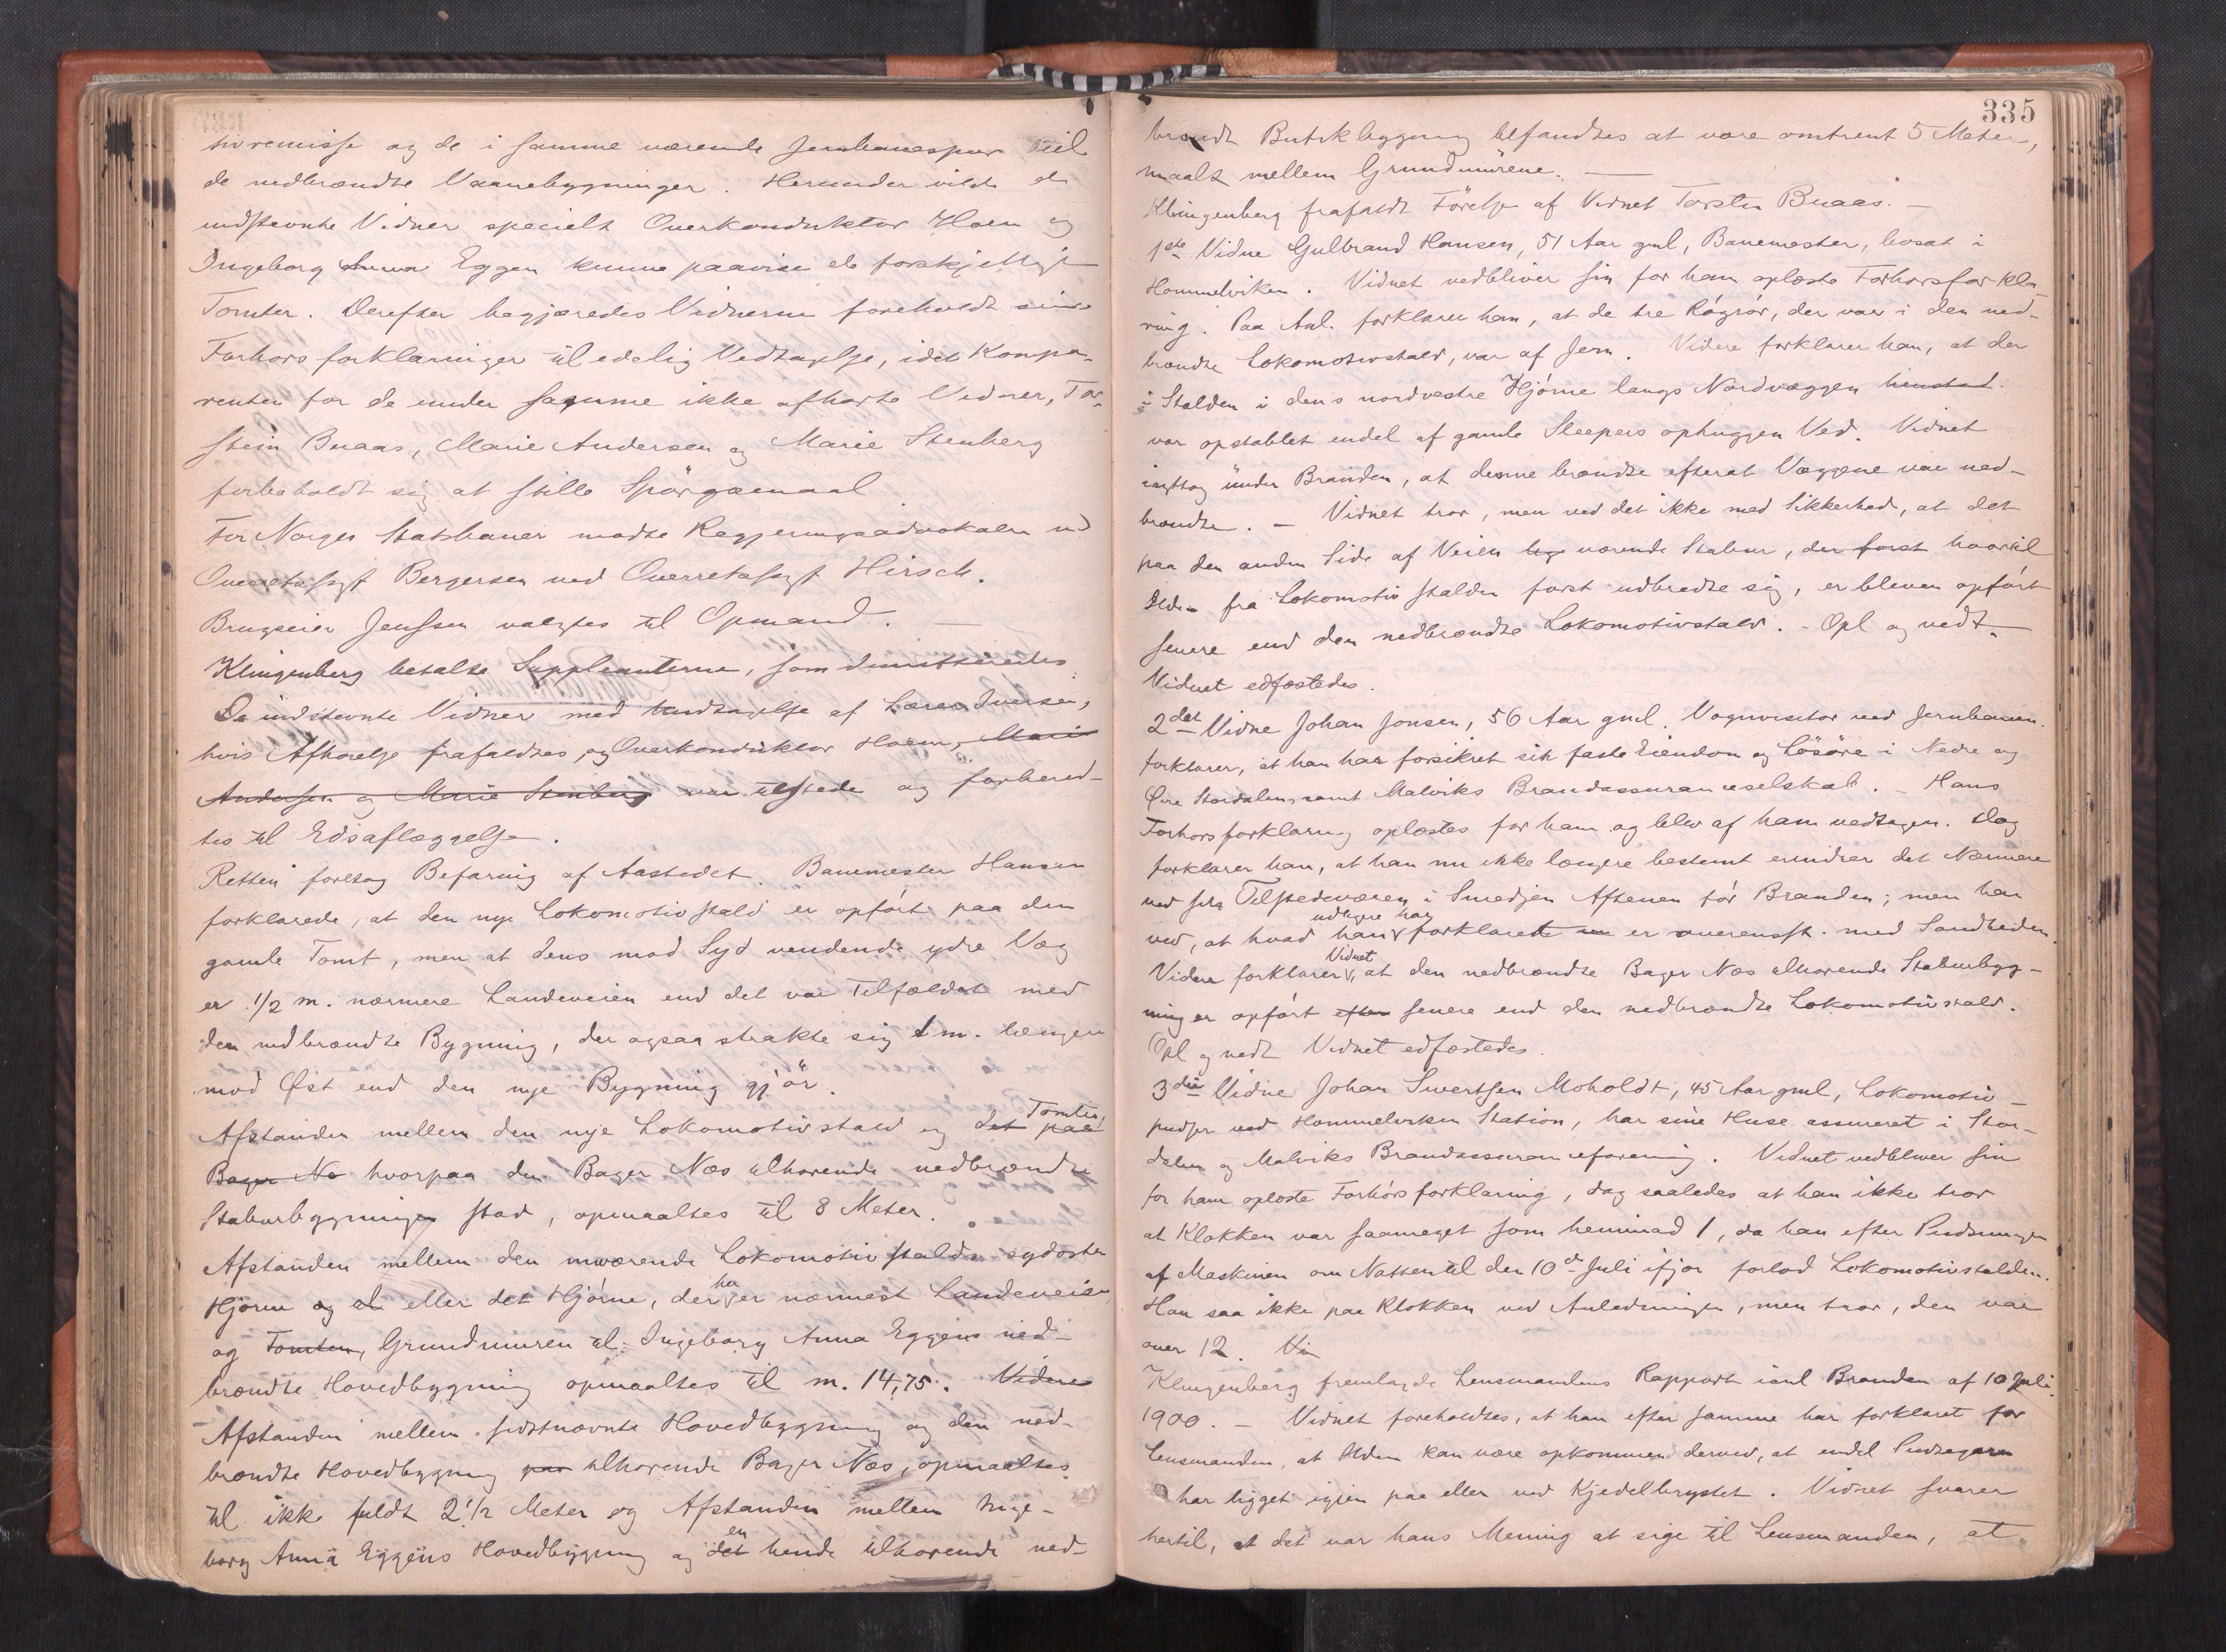 tivremisse og de i samme værende Jernbanespor til
de nedbrændte Vaanebygninger. Herunder vilde de
indstevnte Vidner specielt Overkonduktør Hoem og
Ingeborg Anna Eggen kunne paavise de forskjellige
Tomter. Derefter begjæredes Vidnerne foreholdt sine
Forhørsforklaringer til edelig Vedtagelse, idet Kompa-
renten for de under samme ikke afhørte Vidner, Tor-
stein Buaas, Marie Andersen og Marie Stenberg
forbeholdt sig at stille Spörgsmaal
For Norges Statsbaner mødte Regjeringsadvokaten ved
Overretssagf Bergersen ved Overretssagf Hirsch.
Brugseier Jenssen valgtes til Opmand. —
Klingenberg betalte Suppleanterne, som dimitteredes.
De indstevnte Vidner med Undtagelse af Lærer Iversen,
hvis Afhørelse frafaldtes, og Overkonduktør Hoem, Marie
Andersen og Marie Stenberg var tilstede og forbered-
tes til Edsaflæggelse.
Retten foretog Befaring af Aastedet. Banemester Hansen
forklarede, at den nye Lokomotivstald er opført paa den
gamle Tomt, men at dens mod Syd vendende ydre Væg
er 1/2 m. nærmere Landeveien end det var Tilfældet med
den nedbrændte Bygning, der ogsaa strakte sig 1 m. længere
mod Øst end den nye Bygning gjör.
Afstanden mellem den nye Lokomotivstald og det paa Tomten,
Bager Næ hvorpaa den Bager Næs tilhørende nedbrændte
Staburbygningen stod, opmaaltes til 8 Meter.
Afstanden mellem den nuværende Lokomotivstalds sydøstre
Hjørne og al eller det Hjørne, der her er nærmest Landeveien
og Tomten, Grundmuren til Ingeborg Anna Eggens ned-
brændte Hovedbygning opmaaltes til m. 14,75. Videre
Afstanden mellem sidstnævnte Hovedbygning og den ned-
brændte Hovedbygning paa tilhørende Bager Næs, opmaaltes
til ikke fuldt 2 1/2 Meter og Afstanden mellem Inge-
borg Anna Eggens Hovedbygning og det en hende tilhørende ned-
335
brændt Butikbygning befandtes at være omtrent 5 Meter,
maalt mellem Grundmürene. —
Klingenberg frafaldt Förelse af Vidnet Torstein Buaas. —
1ste Vidne Gulbrand Hansen, 51 Aar gml, Banemester, bosat i
Hommelviken. Vidnet vedbliver sin for ham oplæste Forhørsforkla-
ring. Paa Anl. forklarer han, at de tre Rógrør, der var i den ned-
brændte Lokomotivstald, var af Jern. Videre forklarer han, at der
i Stalden i dens nordvestre Hjørne langs Nordvæggen henstod
var opstablet endel af gamle Sleepers ophuggen Ved. Vidnet
iagttog ünder Branden, at denne brændte efterat Væggene var ned-
brændte. — Vidnet tror, men ved det ikke med Sikkerhed, at det
paa den anden Side af Veien lig værende Stabur, der først hvortil
Ilden fra Lokomotivstalden først udbredte sig, er bleven opført
senere end den nedbrændte Lokomotivstald. - Opl og vedt.
Vidnet edfæstedes.
2det Vidne Johan Jonsen, 56 Aar gml. Vognvisitør ved Jernbanen.
forklarer, at han har forsikret sin faste Eiendom og Lösöre i Nedre og
Øvre Stordalens samt Malviks Brandassuranceselskab. - Hans
Forhørsforklaring oplæstes for ham og blev af ham vedtagen. Dog
forklarer han, at han nu ikke længere bestemt erindrer det Nærmere
ved sin Tilstedeværen i Smedjen Aftenen før Branden; men han
ved, at hvad han tidligere har forklaret er overensst. med Sandheden.
Videre forklarer Vidnet, at den nedbrændte Bager Næs tilhørende Staburbyg-
ning er opført efter senere end den nedbrændte Lokomotivstald.
Opl og vedt Vidnet edfæstedes.
3die Vidne Johan Sivertsen Moholdt, 45 Aar gml, Lokomotiv-
pudser ved Hommelviken Station, har sine Huse assureret i Stør-
dalen og Malviks Brandassuranceforening. Vidnet vedbliver sin
for ham oplæste Forhørsforklaring, dog saaledes at han ikke tror
at Klokken var saameget som henimod 1, da han efter Pudsningen
af Maskinen om Natten til den 10de Juli ifjor forlod Lokomotivstalden.
Han saa ikke paa Klokken ved Anledningen, men tror, den var
over 12. Vi
Klingenberg fremlagde Lensmandens Rapport ianl Branden af 10 Juli
1900. — Vidnet foreholdtes, at han efter samme har forklaret for
Lensmanden, at Ilden kan være opkommen derved, at endel Pudsegarn
har ligget igjen paa eller ved Kjedelbrystet. Vidnet svarer
hertil, at det var hans Mening at sige til Lensmanden, at